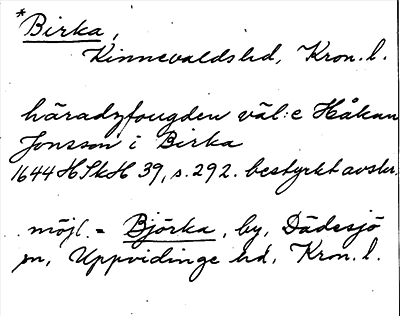 *Birka,
Kinnevalds hd, Kron. l.
häradzfougden väl:e Håkan
Jonsson i Birka
1644 HSkH 39, s. 292. bestyrkt avskr.
möjl. = Björka, by, Dädesjö
sn, Uppvidinge hd, Kron. l.